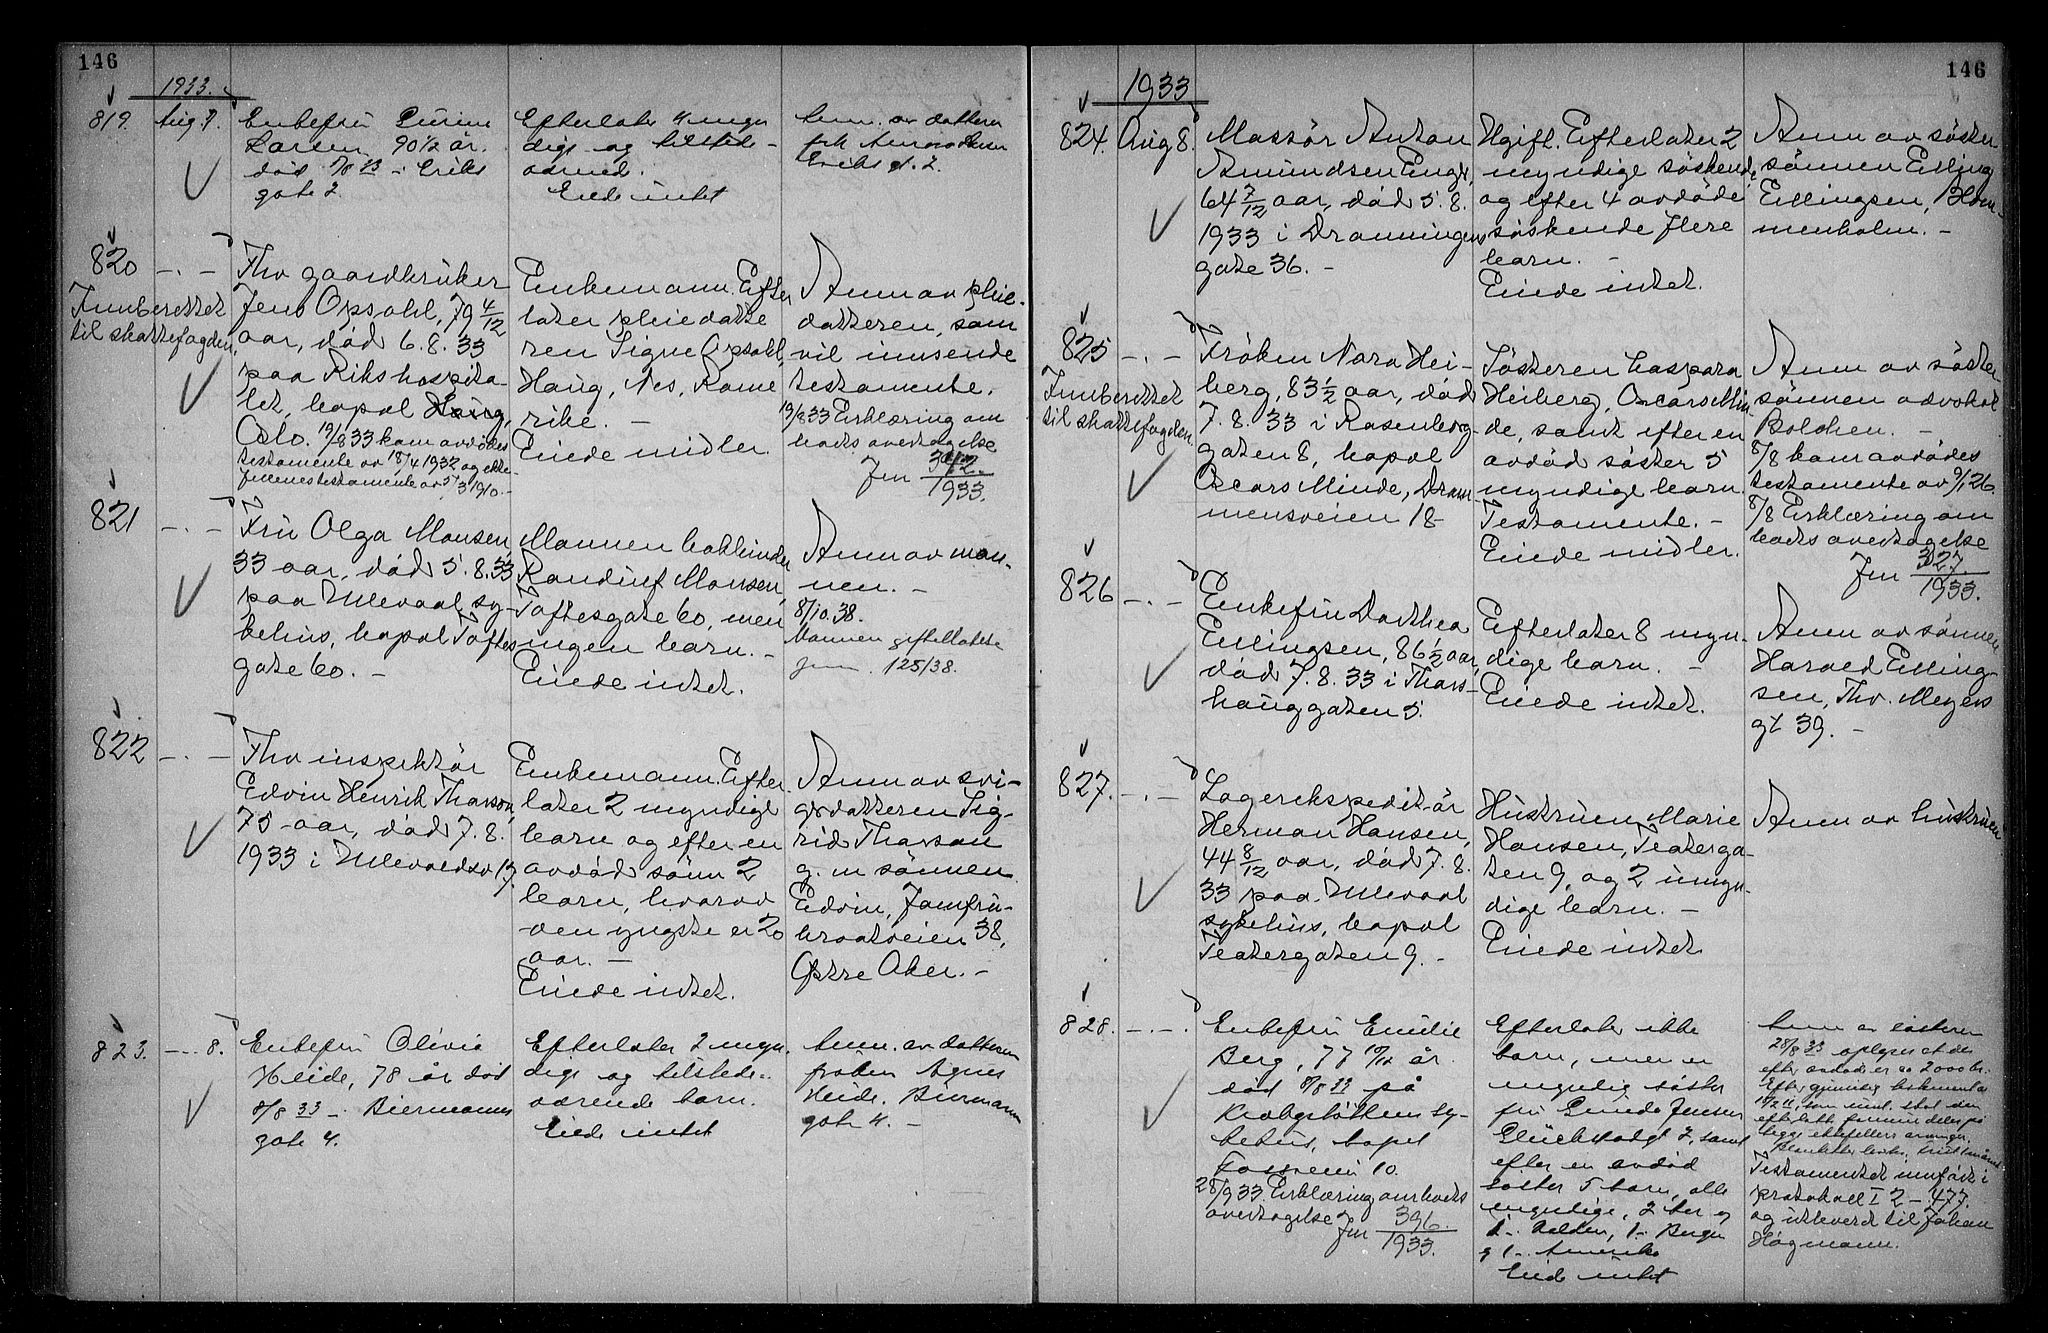 146
1933.
819. Aug 7.
Enkefru
Larsen, 90 1/2 år.
død 7/8 33 – Eriks
gate 2.
Efterlater 4 myn
dige og tilstede-
Eiede intet
Anm. av datteren
frk
Eriks gt. 2.
820 –.–
Innberettet
til skattefogden.
Fhv gaardbruker
Jens Opsahl, 79 4/12
aar, död 6.8.33
paa Rikshospita-
let, bopæl Haug,
Oslo. 19/8 33 kom avdödes
testamente av 18/4 1932 og ekte-
fellenes testamente av 5/3 1910.-
Enkemann. Efter
later pleiedatte
ren Signe Opsahl,
Haug, Nes, Rome
rike. –
Eiede midler
Anm av pleie-
datteren, som
vil innsende
testamente.
19/8 33 Erklæring om
boets overtagelse
Jnr 342./1933.
821 –.–
Fru Olga Monsen,
33 aar, död 5.8.33
paa Ullevaal sy-
kehus, bopæl Toftes
gate 60. –
Mannen bokbinder
Randulf Monsen,
Toftesgate 60, men
ingen barn. –
Eiede intet.
Anm av man-
nen. –
8/10.38.
Mannen
jnr. 125/38.
822 –.–
Fhv inspektör
Edvin Henrik Thorson,
75 aar, död 7.8.
1933 i Ullevoldsv 17.
Enkemann. Efter
later 2 myndige
barn og efter en
avdød sönn 2
barn, hvorav
den yngste er 20
aar. –
Eiede intet.
Anm av svi-
gerdatteren Sig-
rid Thorson
g. m sönnen
Edvin, Jomfru-
braatveien 38,
Östre Aker. –
823. –.– 8.
Enkefru Olivia
Heide, 78 år død
8/8 33 – Biermanns
gate 4.
Efterlater 2 myn.
dige og tilstede-
værende barn.
Eiede intet
Anm. av datteren
frøken Agnes
Heide, Biermanns
gate 4. –
146
1933
824. Aug 8.
Massör Anton
Amundsen Enger,
64 7/12 aar, död 5.8.
1933 i Dronningens
gate 36. –
Ugift. Efterlater 2
myndige söskende
og efter 4 avdöde
söskende flere
barn. –
Eiede intet.
Anm av söster-
sönnen Erling
Ellingsen, Blom-
menholm. –
825 –.–
Innberettet
til skattefogden.
Fröken Nora Hei-
berg, 83 1/2 aar, död
7.8.33 i Rosenborg-
gaten 8, bopæl
Oscars Minde, Dram
mensveien 18
Sösteren Caspara
Heiberg, Oscars Min-
de, samt efter en
avdöd söster 5
myndige barn.
Testamente. –
Eiede midler.
Anm av söster
sönnen advokat
Bolchen. –
8/8 kom avdödes
testamente av 9/1 26.
8/8 Erklæring om
boets overtagelse
Jnr 327/1933.
826 –.–
Enkefru Dorthea
Ellingsen, 86 1/2 aar,
död 7.8.33 i Thors-
hauggaten 5.
Efterlater 8 myn-
dige barn. –
Eiede intet.
Anm av sönnen
Harald Elling-
sen, Thv. Meyers
gt 39. –
827. –.–
Lagerekspeditör
Herman Hansen,
44 8/12 aar, död 7.8.
33 paa Ullevaal
sykehus, bopæl
Teatergaten 9. –
Hustruen Marie
Hansen, Teaterga-
ten 9, og 2 umyn-
dige barn. –
Eiede intet
Anm av hustruen
828. –.–.
Enkefru Emilie
Berg, 77 10/12 år
død 8/8 33 på
Krohgstøttens sy-
kehus, bopel
Fossveien 10.
28/9 33. Erklæring om boets
overtagelse
Jnr 396./1933.
Efterlater ikke
barn, men en
myndig søster
fru Jensen
samt
efter en avdød
søster 5 barn, alle
myndige, 2 her og
1 – Halden, 1 – Bergen
og 1 – Amerika
Eiede intet
Anm av søsteren
28/8 33 oplyses at det
efter avdøde er ca 2000 kr.
Efter gjensidig testamente
Testamentet innfört i
protokoll I 2 – 477.
og utlevert til Johan
Högmann.